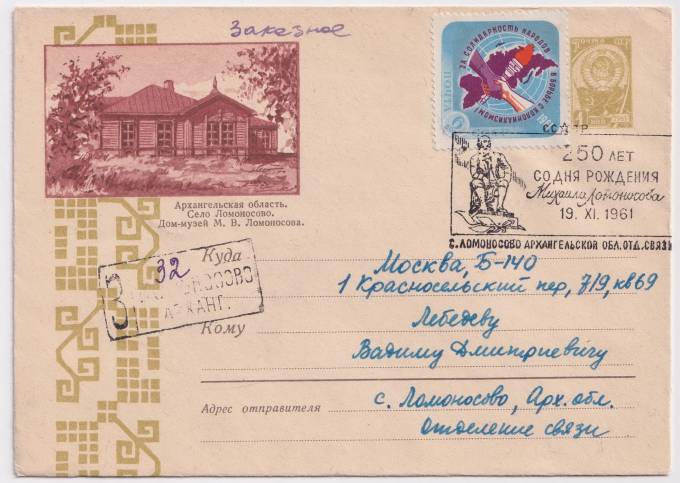 Заказное
ЗА СОЛИДАРНОСТЬ НАРОДОВ
В БОРЬБЕ С КОЛОНИАЛИЗМОМ!
ПОЧТА
1961
4
250 ЛЕТ
СО ДНЯ РОЖДЕНИЯ
Михаила Ломоносова
19. XI. 1961
С. ЛОМОНОСОВО АРХАНГЕЛЬСКОЙ ОБЛ. ОТД. СВЯЗИ
Архангельская область.
Село Ломоносово.
Дом-музей М. В. Ломоносова.
З
32
ЛОМОНОСОВО
АРХАНГ.
Куда
Москва, Б-140
1 Красносельский пер, 7/9, кв 69
Кому
Лебедеву
Вадиму Дмитриевичу
Адрес отправителя
с. Ломоносово, Арх. обл.
Отделение связи